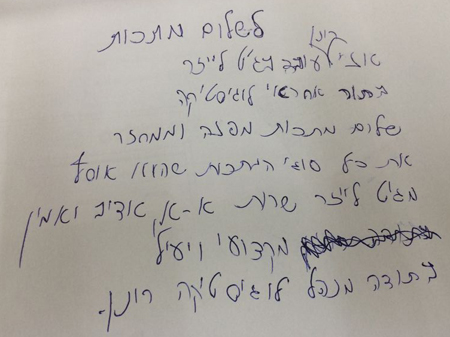 לשלום מתכות
רונן
אני עובד בגיט לייזר
בתור אחראי לוגיסטיקה
שלום מתכות מפלה וממחזר
את כל סוגי המתכות שהוא אוסף
מגיט לייזר שרות א-א, אדיב ואמין
מקצועי ויעיל
בתודה מנהל לוגיסטיקה רונן.